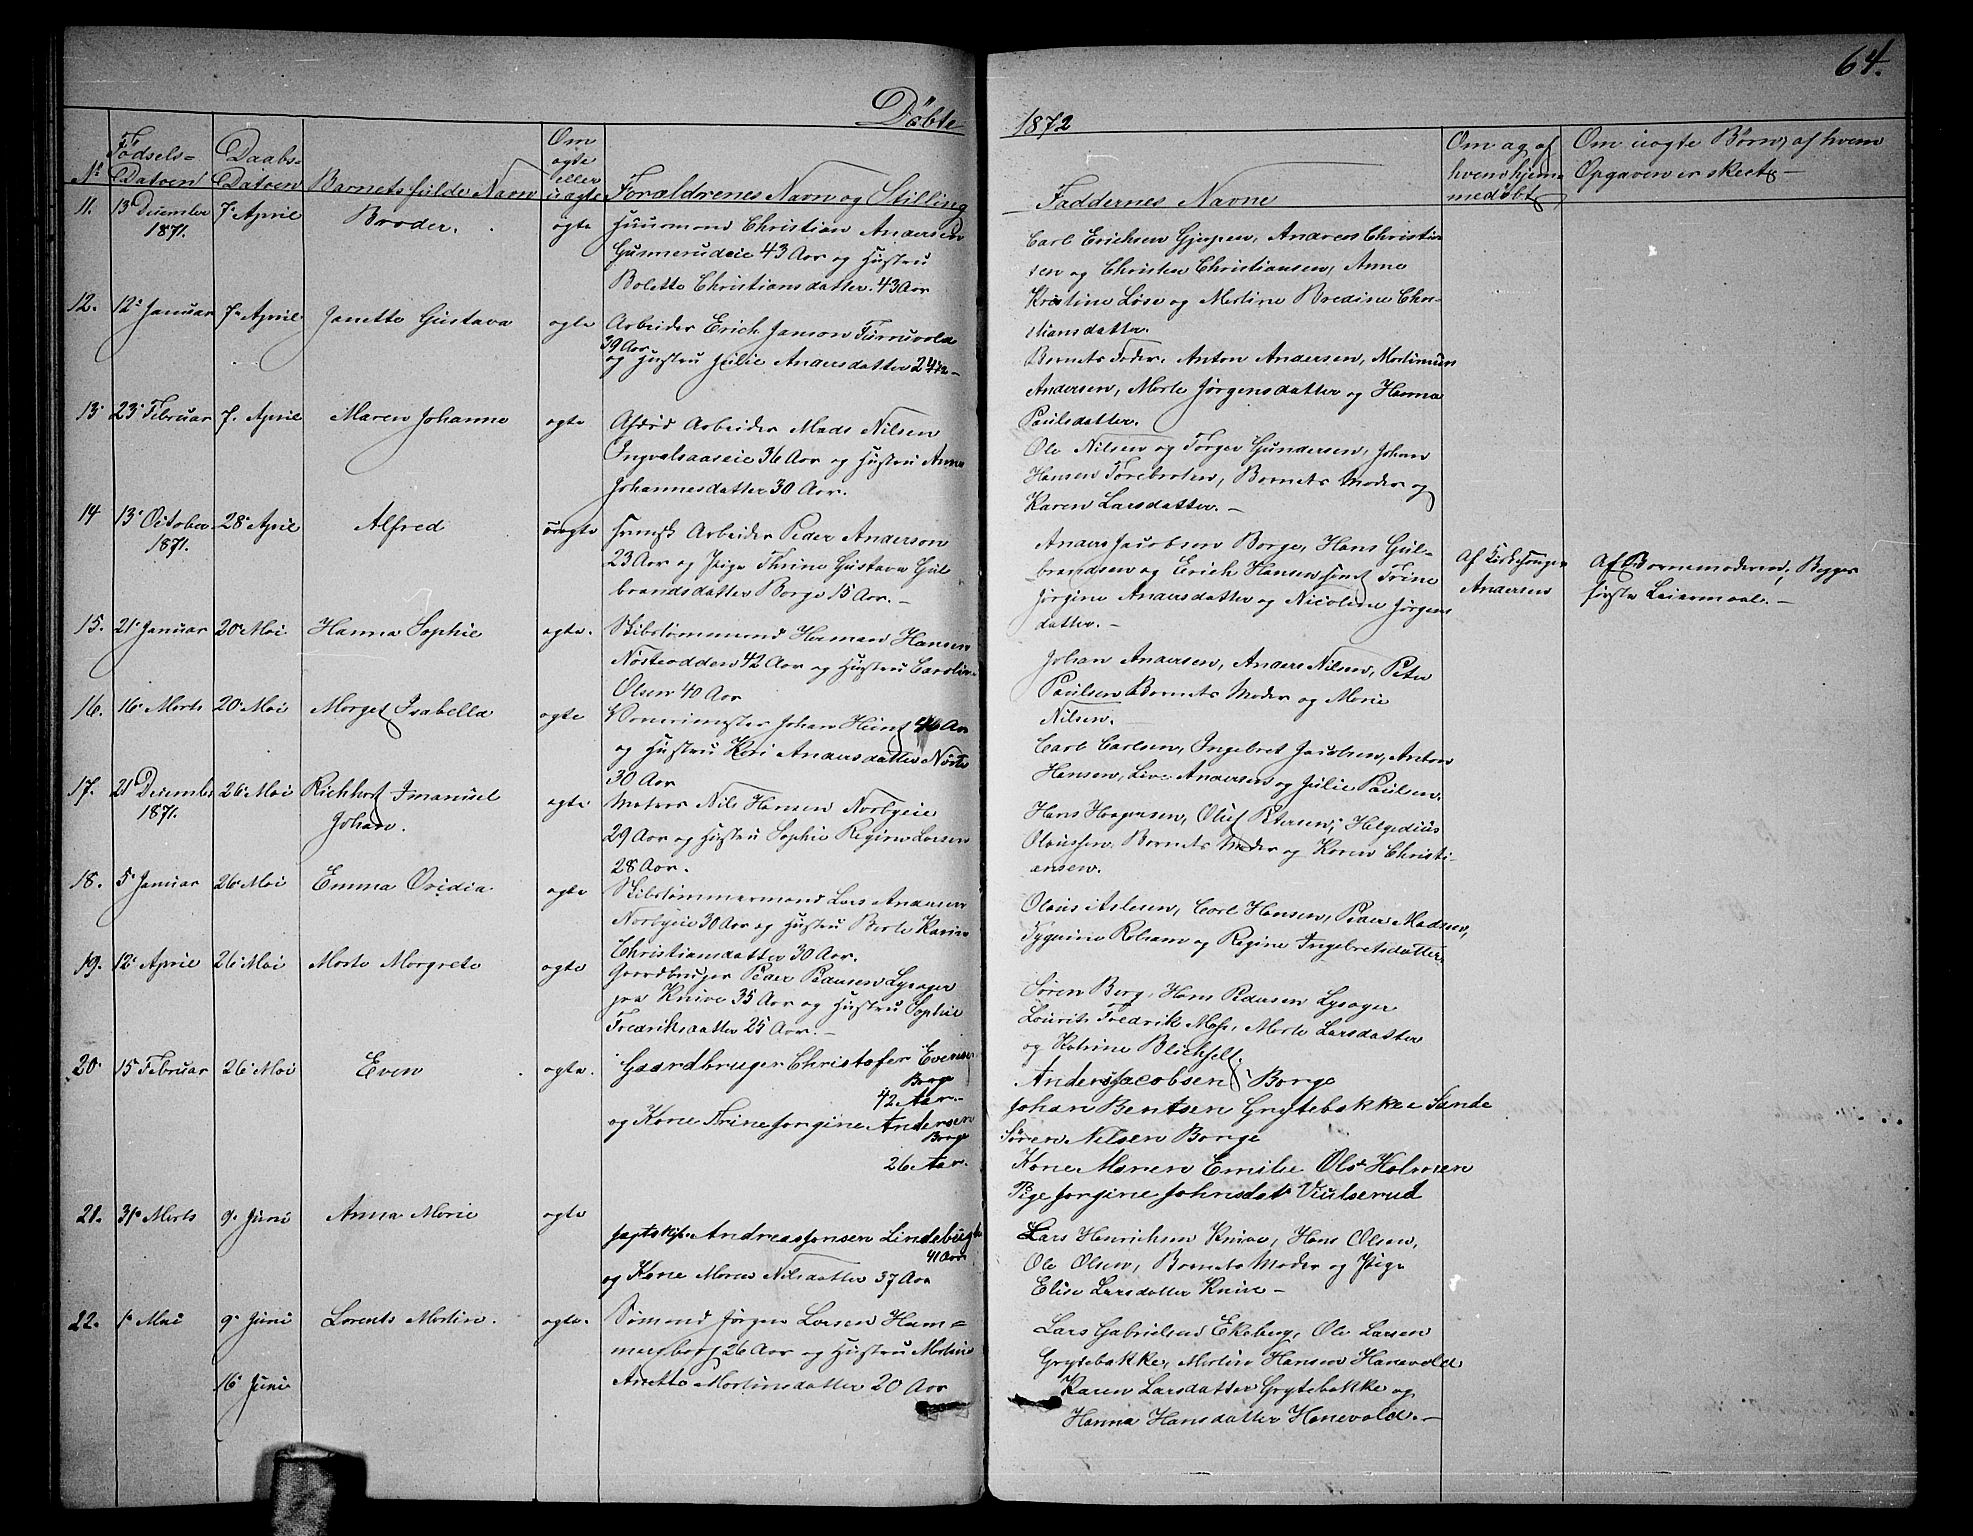 64.
Döbte 1872
No
Fødsels-Datoen
Daabs-Datoen
Barnets fulde Navn
Om ægte eller uægte
Forældrenes Navn og Stilling
Faddernes Navne
Om og af hvem hjemmedøbt
Om uægte Børn, af hvem Opgaven er skeet
11. 13 December 1871. 7. April Broder. ægte
Huusmand Christian Andersen
Gusnerudeie 43 Aar og Hustru
Bolette Christiansdatter 43 Aar
Carl Erichsen Gjerpen, Andreas Christian
sen og Christen Christiansen, Anne
Kristine Löse og Martine Bredine Chri-
stiansdatter.
12. 12 Januar 7. April Janette Gustava ægte
Arbeider Erich Janson
39 Aar
og Hustru Julie Andersdatter 24 Aar
Barnets Fader, Anton Andersen,
Andersen, Marte Jörgensdatter og Hanna
Paulsdatter.
13 23 Februar 7. April Maren Johanne ægte
Afdöd Arbeider Mads Nilsen
Ingvalsaaseie 36 Aar og Hustru Anne
Johannesdatter 30 Aar.
Ole Nilsen og Torger Gundersen, Johan
Hansen Torebroten, Barnets Moder og
Karen Larsdatter. –
14 13 October 1871. 28 April Alfred uægte
svensk Arbeider Peder Anderson
23 Aar og Pige Thrine Gustava Gul
brandsdatter Borge 15 Aar. –
Anders Jacobsen Borge, Hans Gul-
brandsen og Erich Hansen samt Trine
Jörgine Andersdatter og Nicoline Jörgens
datter. –
Af Kirkesanger
Andersen
Af Barnemoderen, Begges
første Leiermaal. –
15. 21 Januar 20 Mai Hanna Sophie ægte.
Skibstömmermand Herman Hansen
Nösteodden 42 Aar og Hustru Caroline
Olsen 40 Aar
Johan Andersen, Anders Nilsen, Peter
Paulsen Barnets Moder og Marie
Nilsen.
16. 16 Marts 20 Mai Marget Isabella ægte
Johan 46 Aar
og Hustru Kari Andersdatter Nöste
30 Aar
Carl Carlsen, Ingebret Jacobsen, Anton
Hansen, Live Andersen og Julie Paulsen.
17. 21 December 1871. 26 Mai Richhart Imanuel Johan. ægte
Matros Nils Hansen Norbyeie
29 Aar og Hustru Sophie Regine Larsen
28 Aar.
Hans Haagensen, Oluf Petersen, Helgedius
Olaussen, Barnets Moder og Karen Christi-
ansen.
18. 5 Januar 26 Mai Emma Ovidia ægte
Skibstömmermand Lars Andersen
Norbyeie 30 Aar og Hustru Berte Karine
Christiansdatter 30 Aar.
Olaus Aslesen, Carl Hansen, Peder Madsen,
og Regine Ingebretsdatter.
19. 12 April 26 Mai Marte Margrete ægte
Gaardbruger Peder Pedersen Lysager
paa Knive 35 Aar og Hustru Sophie
Fredriksdatter 25 Aar. –
Sören Berg, Hans Pedersen Lysager
Lourits Fredrik Moss, Marte Larsdatter
og Katrine Blichfelt.
20 15 Februar 26 Mai Even ægte.
Gaardbruger Christofer Evensen
Borge
42 Aar. –
og Kone Trine Jorgine Andersen
Borge
26 Aar.
Anders Jacobsen Borge
Johan Bentsen Grytebakke i Sande
Sören Nilsen Borge
Kone Maren Emilie Ols. Holmen
Pige Jorgine Johnsdat. Viulserud
21. 31 Marts 9. Juni Anna Marie ægte
Jagtskip. Andreas Jonsen Lindeberg
41 Aar
og Kone Maren Nilsdatter 37 Aar
Lars Henrichsen Knive, Hans Olsen,
Ole Olsen, Barnets Moder og Pige
Elise Larsdatter Knive –
22. 1 Mai 9. Juni Lorents Martin. ægte.
16 Juni
Sömand Jörgen Larsen Ham-
mersborg 26 Aar og Hustru Martine
Anette Martinsdatter 20 Aar
Lars Gabrielsen Ekeberg, Ole Larsen
Grytebakke, Martin Hansen Hanevold
Karen Larsdatter Grytebakke og
Hanna Hansdatter Hanevold. –